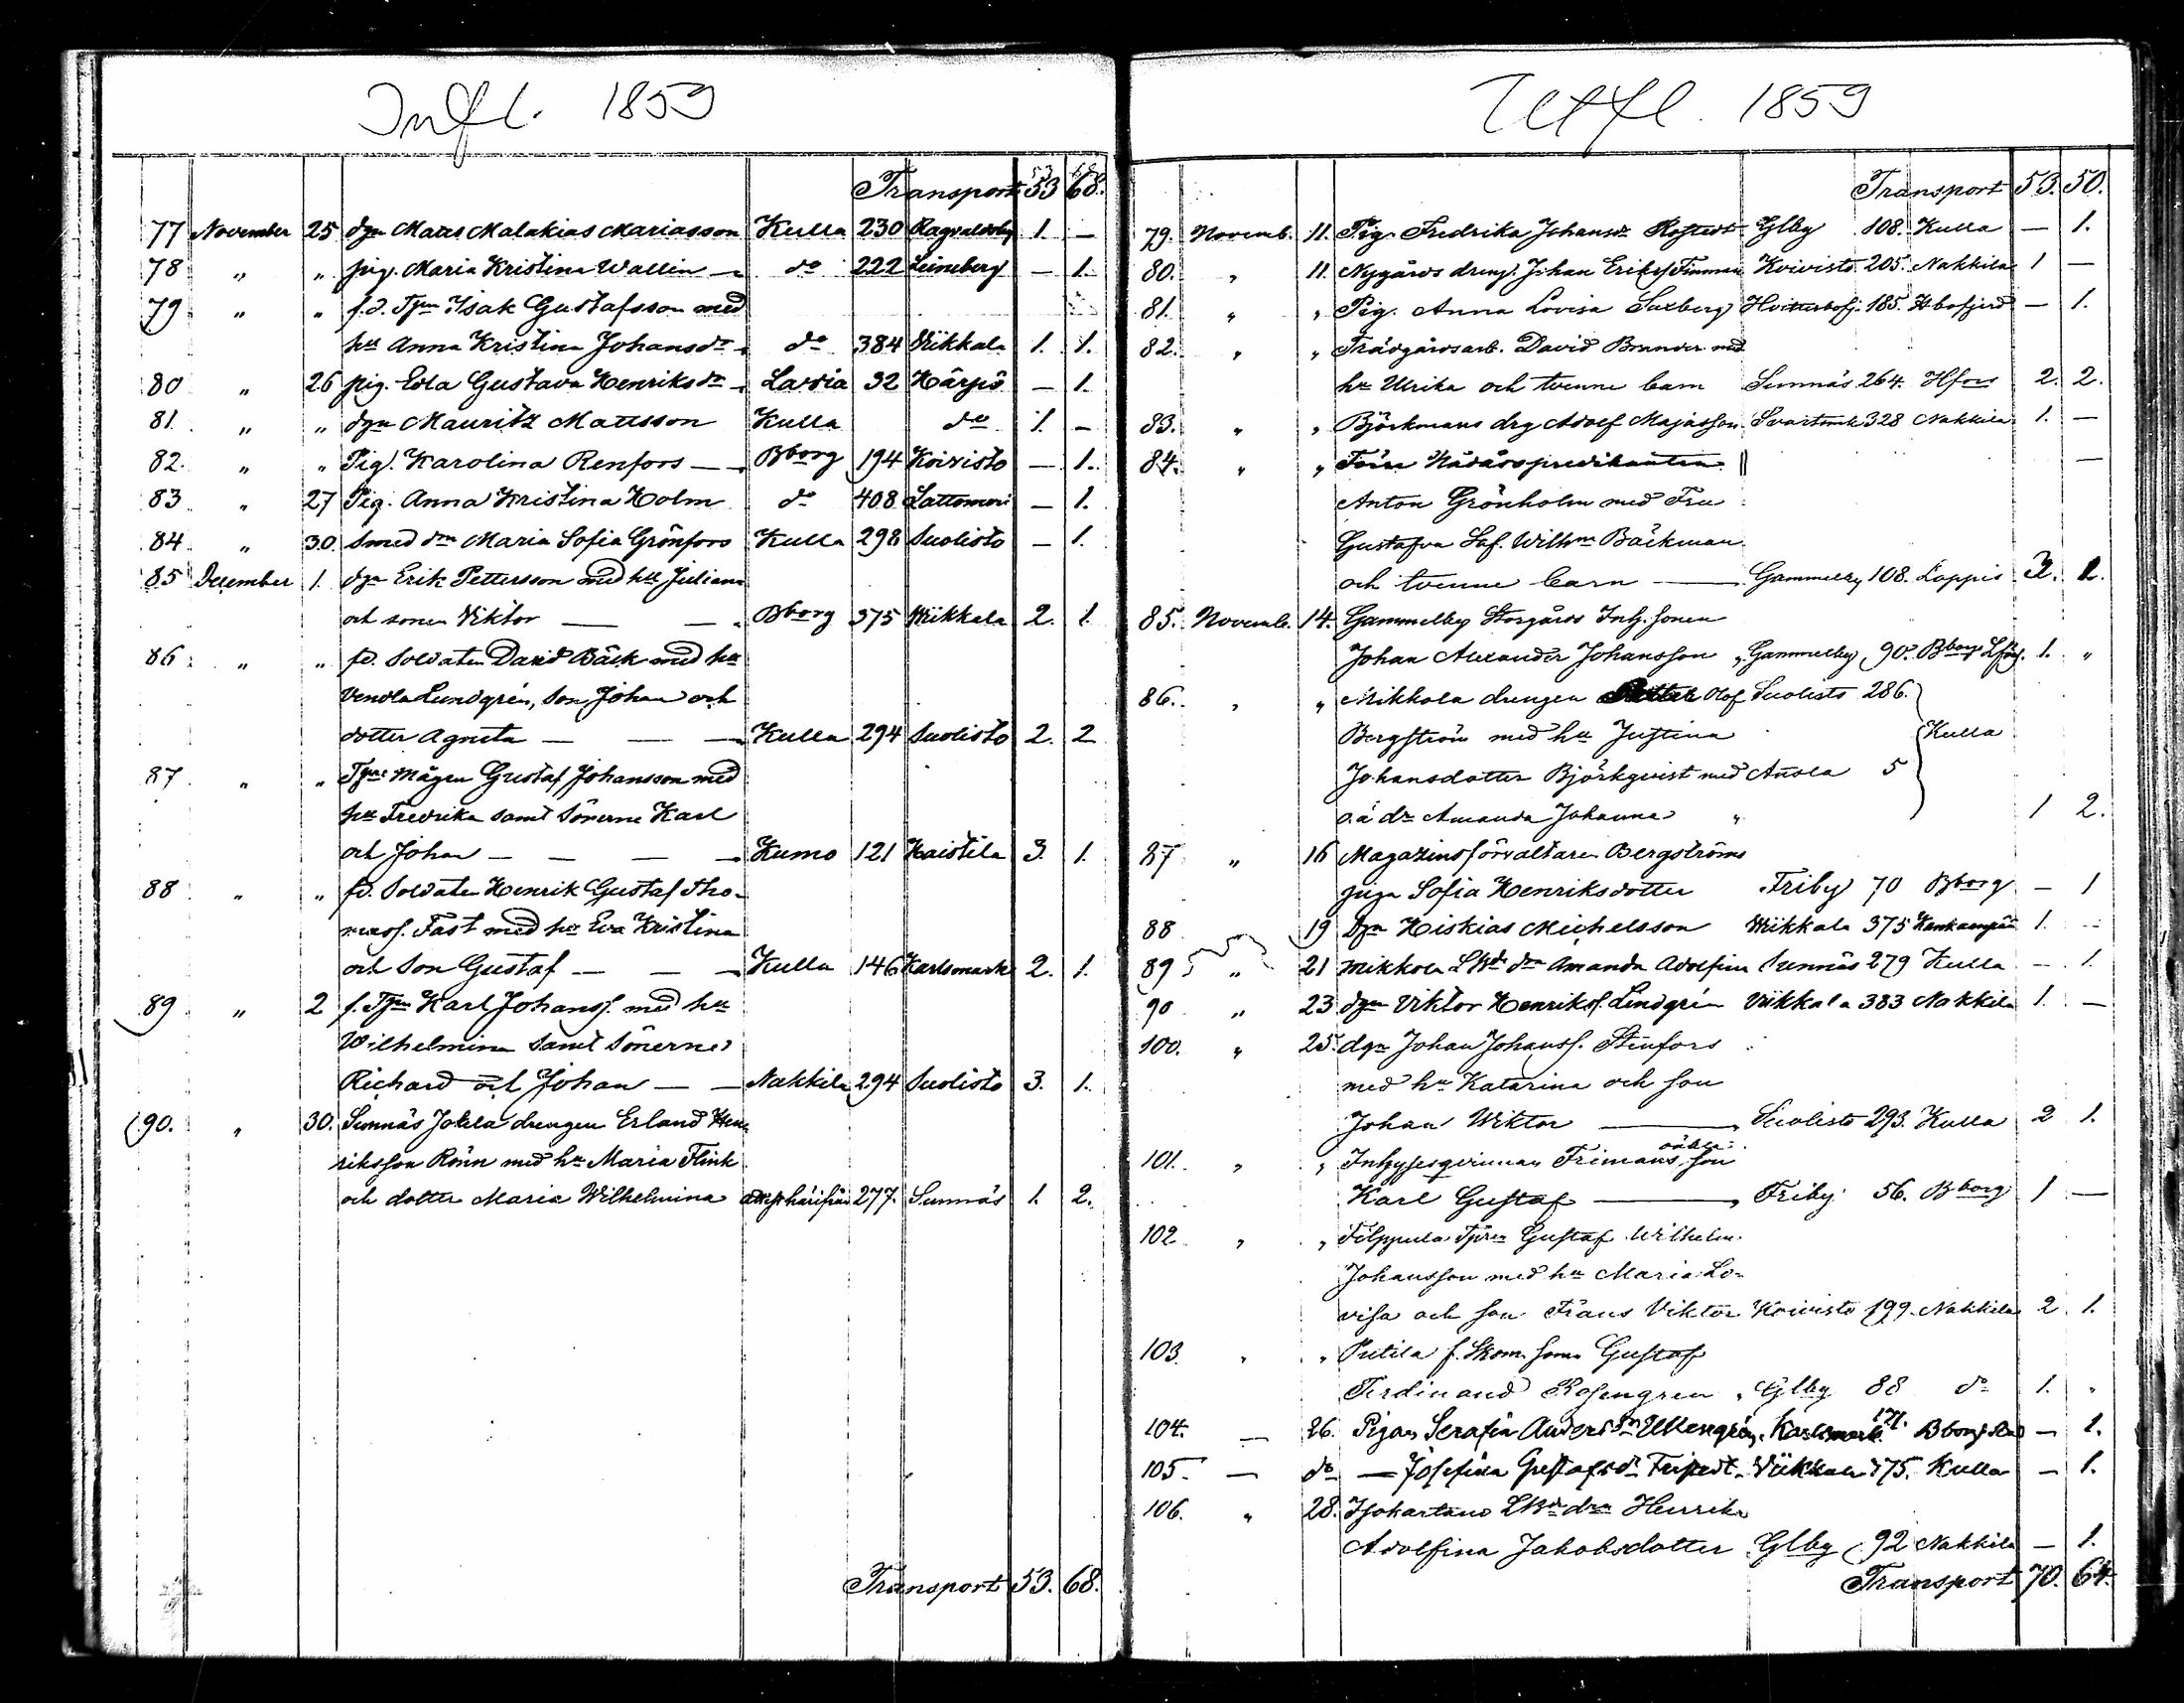 Infl. 1859
Transport 53 68.
77 November 25 dgn Matts Malakias Mariasson Kulla 230 Ragvaldsby 1. —
78 " " pig. Maria Kristina Wallin — do 222 Leineberg — 1.
79 " " f.d. Tpn Isak Gustafsson med
hu Anna Kristina Johansdr do 384 Wikkala 1. 1.
80 " 26 pig. Eda Gustava Henriksdr Lavia 32 Härpö — 1.
81. " " dgn Mauritz Mattsson Kulla do 1. —
82. " " Pig. Karolina Renfors — Bborg 194 Koivisto — 1.
83 " 27 Pig. Anna Kristina Holm do 408 Lattomeri — 1.
84 " 30. Smed drn Maria Sofia Grönfors Kulla 298 Suolisto — 1.
85 December 1. dgn Erik Pettersson med hu Juliana
och sonen Viktor — — Bborg 375 Wikkala 2. 1.
86 " " fd. Soldaten David Bäck med hu
Vendla Lundgrén, son Johan och
dotter Agneta — — — Kulla 294 Suolisto 2. 2
87 " " Tpns mågen Gustaf Johansson med
hu Fredrika samt Sönerne Karl
och Johan — — — Kumo 121 Haistila 3. 1.
88 " " fd. Soldaten Henrik Gustaf Tho-
mass. Fast med hu Eva Kristina
och Son Gustaf — — — Kulla 146 Karlsmark 2. 1.
89 " 2 f. Tpn Karl Johanss. med hu
Wilhelmina samt Sönerne
Richard och Johan — — Nakkila 294 Suolisto 3. 1.
90. " 30. Sunnäs Jokela drengen Erland Hen-
riksson Rönn med hu Maria Flink
och dotter Maria Wilhelmina härifrån 277. Sunnäs 1. 2.
Transport 53. 68.
Utfl. 1859
Transport 53. 50.
79. Novemb. 11. Pig. Fredrika Johansdr Rostedt Glby 108. Kulla — 1.
80. " 11. Nygårds dreng. Johan Eriks. Finnman Koivisto 205. Nakkila 1 —
81. " " Pig. Anna Lovisa Saxberg Hvittisbofj. 185. Hbofjerd — 1.
82. " " Trädgårdsarb. David Brander med
hu Ulrika och tvenne barn Sunnäs 264. Hfors 2. 2.
83. " " Björkmans drg Adolf Majasson Svartsmark 328 Nakkila 1. —
84. " " Förre Nådårspredikanten —
Anton Grönholm med Fru
Gustafva Sof. Wilhna Bäckman
och tvenne barn — Gammelby 108. Lappis 3. 1.
85. Novemb. 14. Gammelby Storgårds Inh. sonen
Johan Alexander Johansson " Gammelby 90. Bborgs Lförs. 1. "
86. " " Mikkola drengen Olof Suolisto 286.
Bergström med hu Justina Kulla
Johansdotter Björkqvist med Anola 5
o.ä. dr Amanda Johanna " 1 2.
87 " 16 Magazinsförvaltaren Bergströms
piga Sofia Henriksdotter Friby 70 Bborg — 1
88 19 Dgn Hiskias Michelsson Wikkala 375 Kankaanpää 1. —
89 " 21 Mikkola LBd drn Amanda Adolfina Sunnäs 279 Kulla — 1.
90 " 23 dgn Viktor Henrikss. Lindgrén Wikkala 383 Nakkila 1. —
100. " 25. dgn Johan Johanss. Stenfors
med hu Katarina och son
Johan Wiktor — Suolisto 293. Kulla 2 1.
101. " " Inhyseqvinnan Frimans oäkta son
Karl Gustaf — Friby 56. Bborg 1 —
102 " " Filppula Tpren Gustaf Wilhelm
Johansson med hu Maria Lo-
visa och son Frans Viktor Koivisto 199. Nakkila 2 1.
103. " " Putila f. Skom. sonen Gustaf
Ferdinand Rosengren " Glby 88 do 1. "
104. — 26. Pigan Serafia Andersdr Ullengrén, Karlsmark 171. Bborg stad — 1.
105 — do — Josefina Gustafsdr Feistedt, Wikkala 375. Kulla — 1.
106. " 28. Isokartano LBd drn Henrika
Adolfina Jakobsdotter Glby 92 Nakkila — 1.
Transport 70. 64.